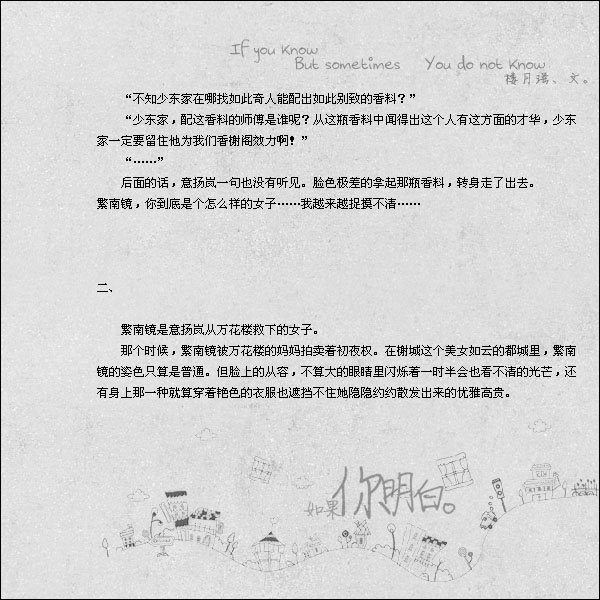 If you know
But sometimes You do not know
楼月潆、文。
“不知少东家在哪找如此奇人能配出如此别致的香料？”
“少东家，配这香料的师傅是谁呢？从这瓶香料中闻得出这个人有这方面的才华，少东
家一定要留住他为我们香榭阁效力啊！”
“……”
后面的话，意扬岚一句也没有听见。脸色极差的拿起那瓶香料，转身走了出去。
繁南镜，你到底是个怎么样的女子……我越来越捉摸不清……
二、
繁南镜是意扬岚从万花楼救下的女子。
那个时候，繁南镜被万花楼的妈妈拍卖着初夜权。在榭城这个美女如云的都城里，繁南
镜的姿色只算是普通。但脸上的从容，不算大的眼睛里闪烁着一时半会也看不清的光芒，还
有身上那一种就算穿着艳色的衣服也遮挡不住她隐隐约约散发出来的优雅高贵。
如果你明白。